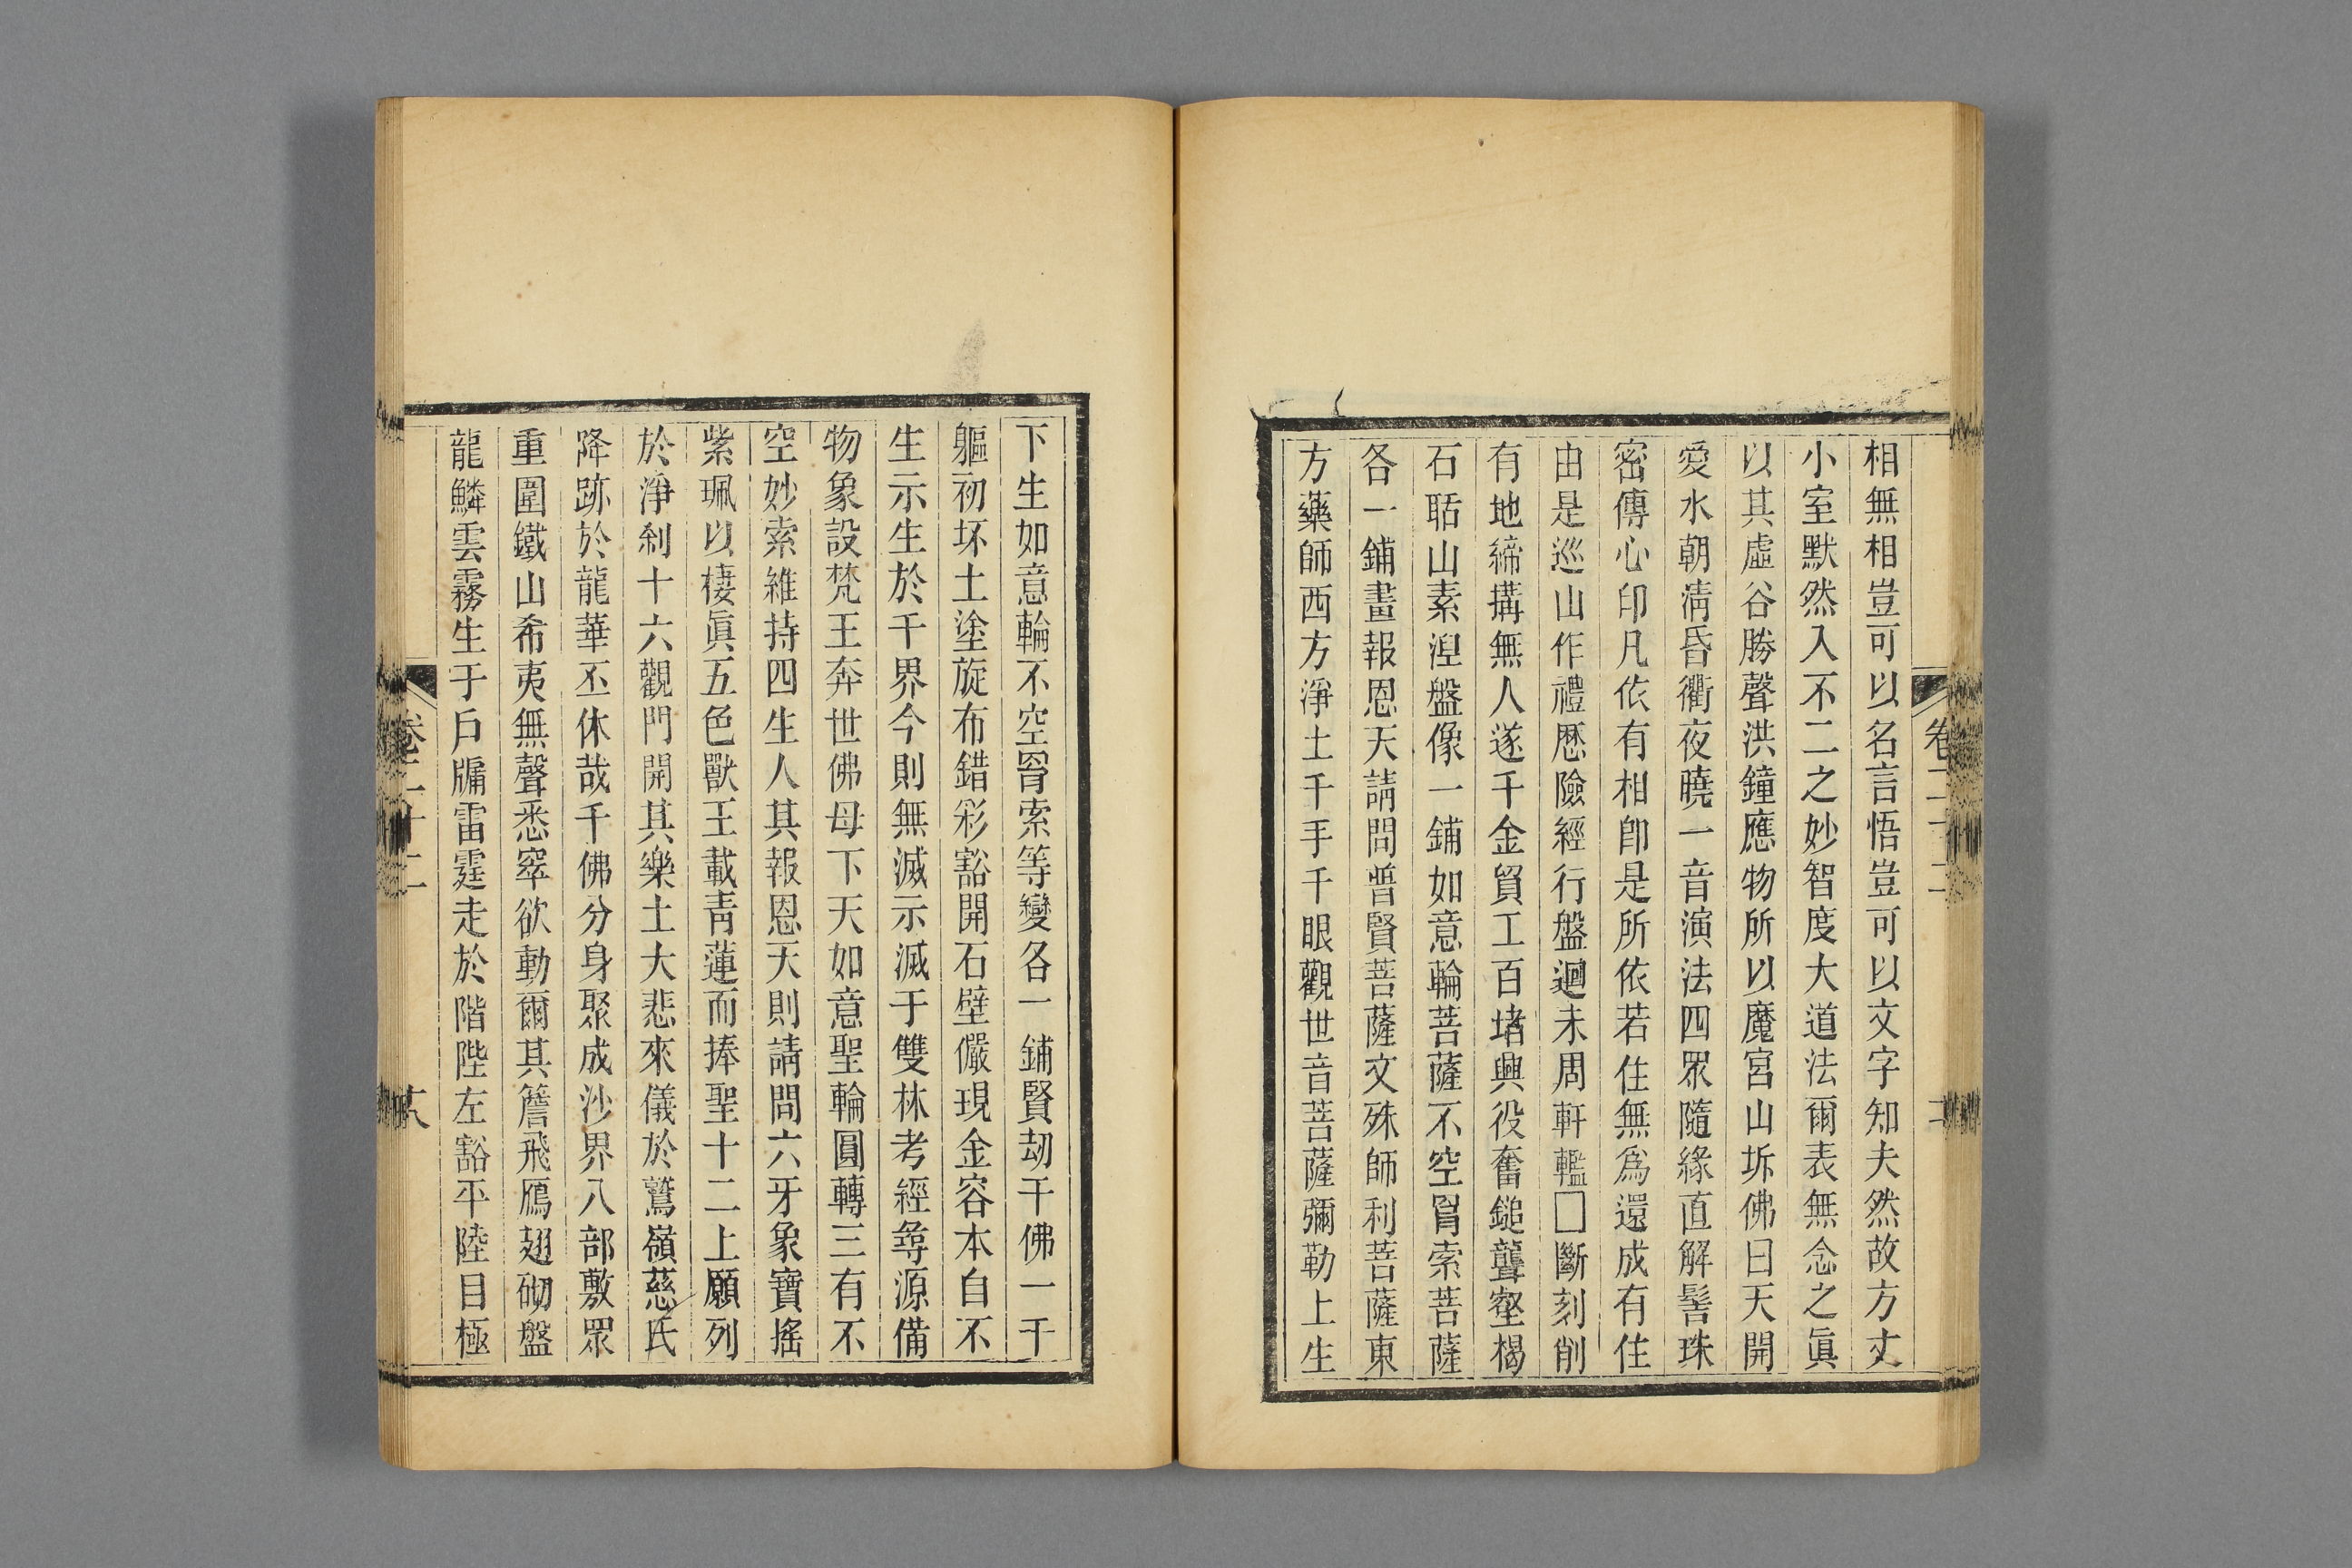 相無相豈可以名言悟豈可以文字知夫然故方丈
小室默然入不二之妙智度大道法爾表無念之眞
以其虛谷勝聲洪鐘應物所以魔宮山坼佛日天開
愛水朝淸昏衢夜曉一音演法四眾隨緣直解髻珠
密傳心印凡依有相卽是所依若住無爲還成有住
由是巡山作禮厯險經行盤迴未周軒轞□斷刻削
有地締搆無人遂千金貿工百堵興役奮鎚聾壑楬
石聒山素湼盤像一鋪如意輪菩薩不空罥索菩薩
各一鋪畫報恩天請問普賢菩薩文殊師利菩薩東
方藥師西方淨土千手千眼觀世音菩薩彌勒上生
下生如意輪不空罥索等變各一鋪賢刼千佛一千
軀初坏土塗旋布錯彩豁開石壁儼現金容本自不
生示生於千界今則無滅示滅于雙林考經尋源備
物象設梵王奔世佛母下天如意聖輪圓轉三有不
空妙索維持四生人其報恩天則請問六牙象寶搖
紫珮以棲眞五色獸王載青蓮而捧聖十二上願列
於淨剎十六觀門開其樂土大悲來儀於鷲嶺慈氏
降跡於龍華丕休哉千佛分身聚成沙界八部敷眾
重圍鐵山希夷無聲悉窣欲動爾其簷飛鴈翅砌盤
龍鱗雲霧生于戶牖雷霆走於階陛左豁平陸目極
卷二十二